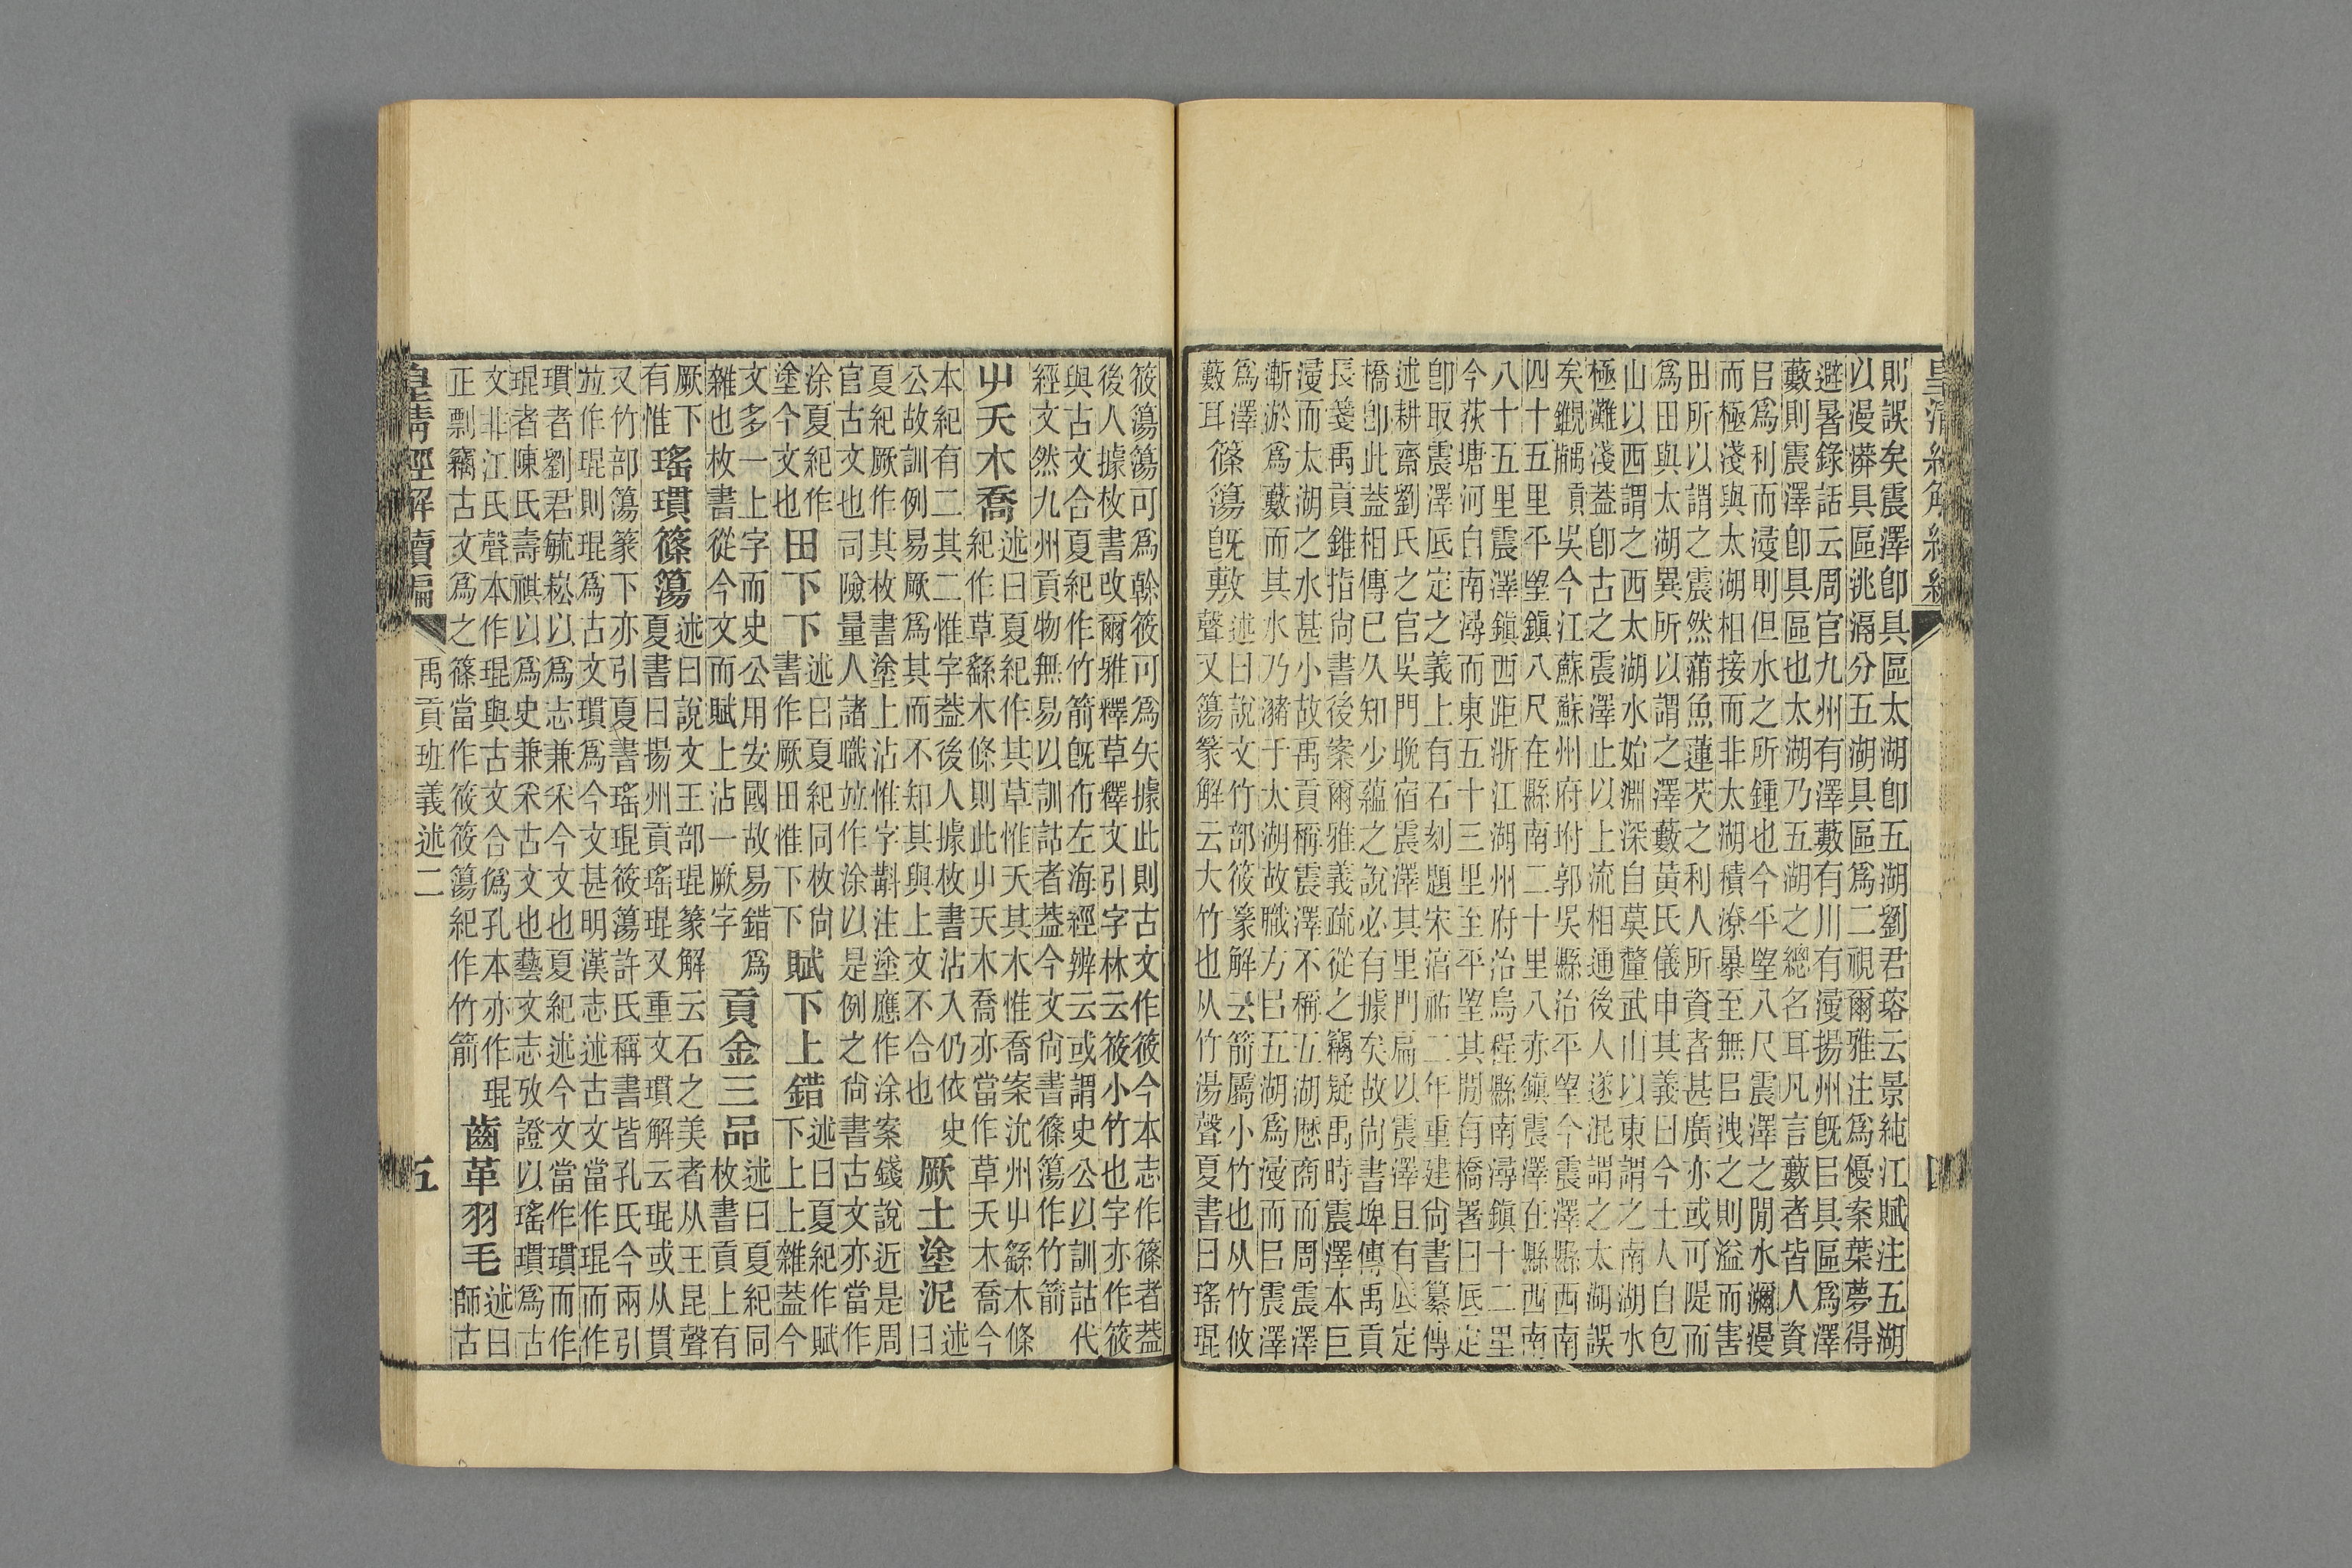 皇清經解續編
四
則誤矣震澤卽具區太湖卽五湖劉君瑹云景純江賦注五湖
以漫漭具區洮滆分五湖具區爲二視爾雅注爲優案葉夢得
避暑錄話云周官九州有澤藪有川有漫揚州旣㠯具區爲澤
藪則震澤卽具區也太湖乃五湖之總名耳凡言藪者皆人資
㠯爲利而漫則但水之所鍾也今平朢八尺震澤之閒水瀰漫
而極淺與太湖相接而非太湖積潦暴至無㠯洩之則溢而害
田所以謂之震然蒲魚蓮芡之利人所資者甚廣亦或可隄而
爲田與太湖異所以謂之澤藪黃氏儀申其義曰今土人自包
山以西謂之西太湖水始淵深自莫釐武山以東謂之南湖水
極灘淺蓋卽古之震澤止以上流相通後人遂混謂之太湖誤
矣貢吳今江蘇蘇州府坿郭吳縣治平朢今震澤縣西南
四十五里平朢鎮八尺在縣南二十里八亦鎮震澤在縣西南
八十五里震澤鎮西距浙江湖州府治烏程縣南潯鎮十二里
今荻塘河自南潯而東五十三里至平朢其閒有橋署曰厎定
卽取震澤厎定之義上有石刻題宋湻祐二年重建尚書纂傳
述耕齋劉氏之官吳門晚宿震澤其里門扁以震澤且有厎定
橋卽此蓋相傳已久知少蘊之說必有據矣故尚書埤傳禹貢
長箋禹貢錐指尚書後案爾雅義疏從之竊疑禹時震澤本巨
漫而太湖之水甚小故禹貢稱震澤不稱五湖歷商而周震澤
漸淤爲藪而其水乃瀦于太湖故職方㠯五湖爲漫而㠯震澤
爲澤
藪耳
篠簜旣敷
述曰說文竹部筱篆解云箭屬小竹也从竹攸
聲又簜篆解云大竹也从竹湯聲夏書曰瑤琨
筱簜簜可爲榦筱可爲矢據此則古文作筱今本志作篠者蓋
後人據枚書改爾雅釋草釋文引字林云筱小竹也字亦作筱
與古文合夏紀作竹箭旣布左海經辨云或謂史公以訓詁代
經文然九州貢物無易以訓詁者蓋今文尚書篠簜作竹箭
屮夭木喬
述曰夏紀作其草惟夭其木惟喬案沇州屮繇木條
紀作草繇木條則此屮夭木喬亦當作草夭木喬今
本紀有二其二惟字蓋後人據枚書沾入仍依史
公故訓例易厥爲其而不知其與上文不合也
厥土塗泥
述
曰
夏紀厥作其枚書塗上沾惟字斠注塗應作涂案錢說近是周
官古文也司險量人諸職竝作涂以是例之尚書古文亦當作
涂夏紀作
塗今文也
田下下
述曰夏紀同枚尚
書作厥田惟下下
賦下上錯
述曰夏紀作賦
下上上雜蓋今
文多一上字而史公用安國故易錯爲
雜也枚書從今文而賦上沾一厥字
貢金三品
述曰夏紀同
枚書貢上有
厥下
有惟
瑤瑻篠簜
述曰說文王部琨篆解云石之美者从王昆聲
夏書曰揚州貢瑤琨又重文瑻解云琨或从貫
又竹部簜篆下亦引夏書瑤琨筱簜許氏稱書皆孔氏今兩引
竝作琨則琨爲古文瑻爲今文甚明漢志述古文當作琨而作
瑻者劉君毓崧以爲志兼釆今文也夏紀述今文當作瑻而作
琨者陳氏壽祺以爲史兼釆古文也藝文志攷證以瑤瑻爲古
文非江氏聲本作琨與古文合僞孔本亦作琨
正剽竊古文爲之篠當作筱筱簜紀作竹箭
齒革羽毛
述曰
師古
皇清經解續編
禹貢班義述二
五